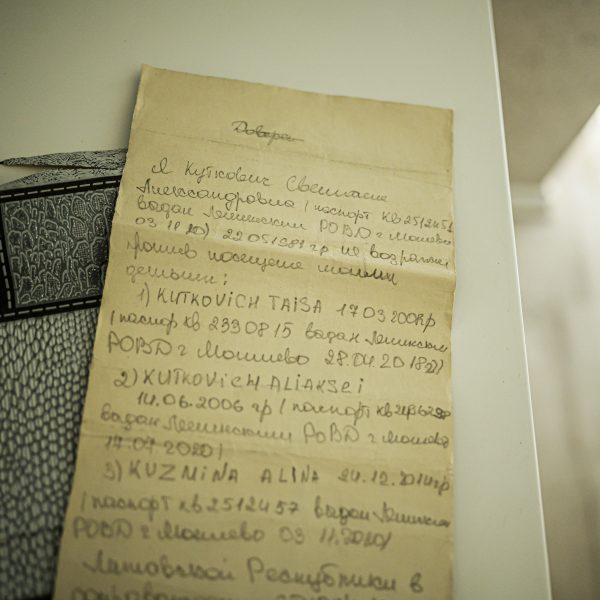 Довере
Я Куткович Светлана
Александровна (паспорт КВ2512451
выдан Ленинским РОВД г Могилево
03 11 20) 22 05 1981 гр не возражаю
против посещения моими
детьми:
1) KUTKOVICH TAISA 17 03 200 гр
(паспор КВ 2330815 выдан Ленинским
РОВД г Могилево 28.04.2018
2) KUTKOVICH ALIAKSEI
14.06.2006 гр (паспорт КВ
выдан Ленинским РОВД г Могилево
17.07 2020)
3) KUZMINA ALINA 24.12.2014гр
(паспорт КВ2512457 выдан Ленинским
РОВД г Могилево 03 11.2020)
Литовской Республики в